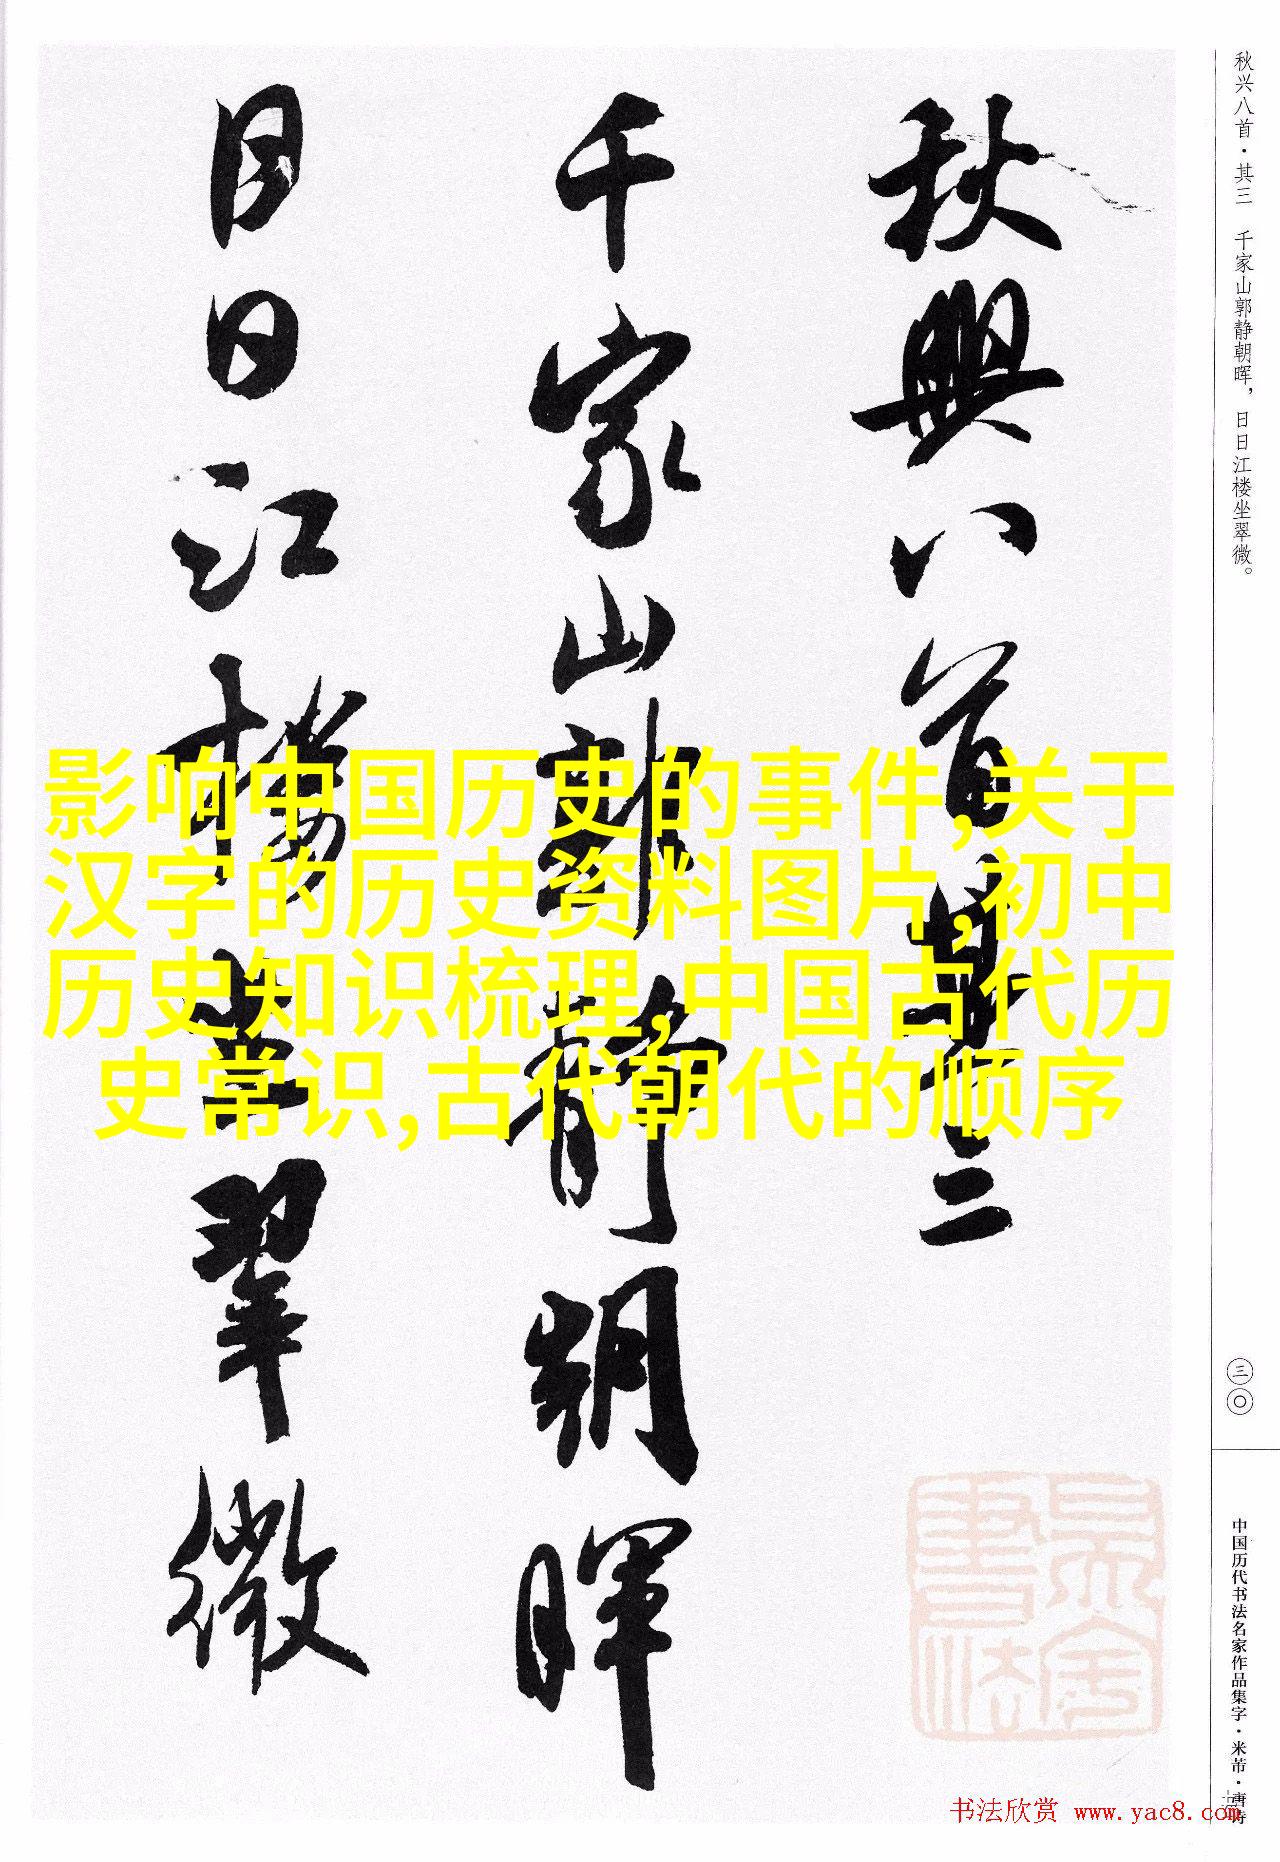 秋兴八首·其三 千家山郭静朝晖，日日江楼坐翠微。
三〇
中国历代书法名家作品集字·米芾·唐诗
秋興八首其三
千家山郭靜朝暉
日日江樓坐翠微
影响中国历史的事件,关于
汉字的历史资料图片,初中
历史知识梳理,中国古代历
史常识,古代朝代的顺序
书法欣赏 www.yac8.com